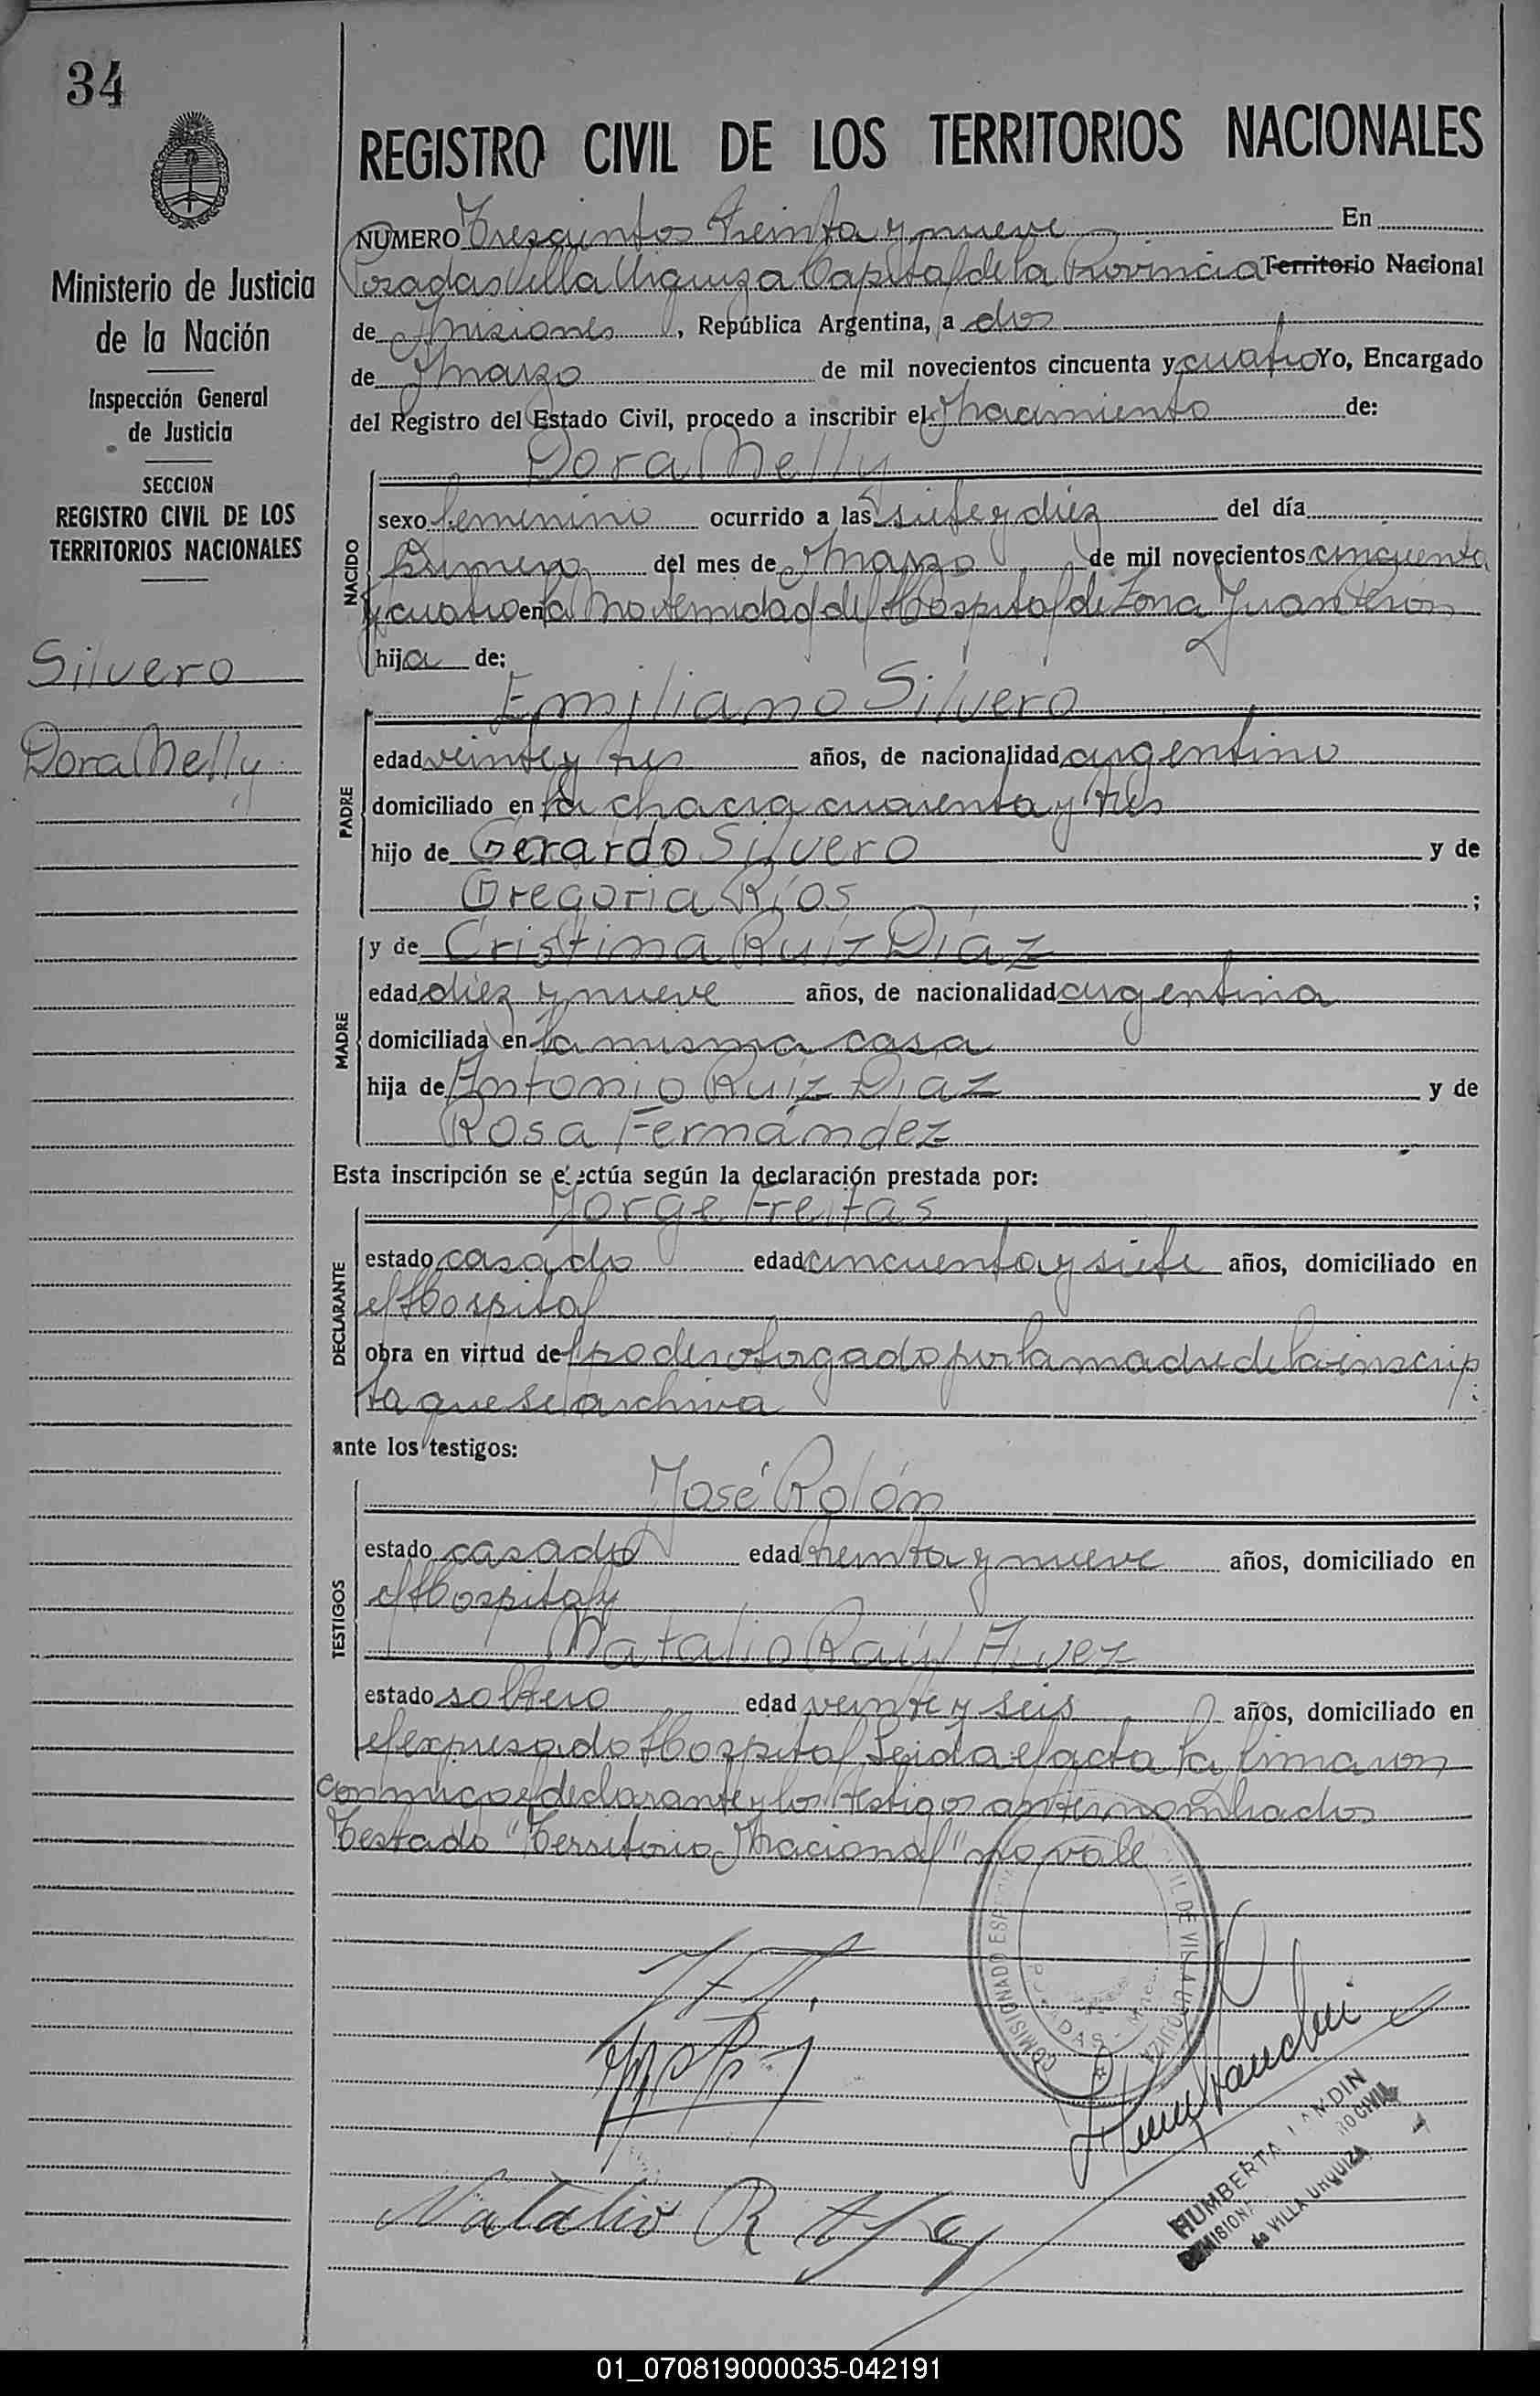 34
REGISTRO CIVIL DE LOS TERRITORIOS NACIONALES
Ministerio de Justicia
de la Nación
Inspección General
de Justicia
SECCION
REGISTRO CIVIL DE LOS
TERRITORIOS NACIONALES
Silvero
Dora Nelly
NUMERO Trescientos treinta y nueve En
Posadas Villa Urquiza Capital de la Provincia Territorio Nacional
de Misiones, República Argentina, a dos
de Marzo de mil novecientos cincuenta y cuatro Yo, Encargado
del Registro del Estado Civil, procedo a inscribir el Nacimiento de:
Dora Nelly
NACIDO
sexo femenino ocurrido a las siete y diez del día
primero del mes de Marzo de mil novecientos cincuenta
y cuatro en la Maternidad del Hospital de Zona Juan Perón
hija de:
Emiliano Silvero
PADRE
edad veinte y tres años, de nacionalidad argentino
domiciliado en la chacra cuarenta y tres
hijo de Gerardo Silvero y de
Gregoria Ríos ;
y de Cristina Ruíz Díaz
MADRE
edad diez y nueve años, de nacionalidad argentina
domiciliada en la misma casa
hija de Antonio Ruíz Díaz y de
Rosa Fernández
Esta inscripción se efectúa según la declaración prestada por:
Jorge Freitas
DECLARANTE
estado casado edad cincuenta y siete años, domiciliado en
el Hospital
obra en virtud del poder otorgado por la madre de la inscrip
ta que se archiva
ante los testigos:
José Rolón
TESTIGOS
estado casado edad treinta y nueve años, domiciliado en
el Hospital y
Natalio Raúl
estado soltero edad veinte y seis años, domiciliado en
el expresado Hospital Leida el acta la firmaron
conmigo el declarante y los testigos anternombrados
Testado "Territorio Nacional" no vale
COMISIONADO
CIVIL DE VILLA URQUIZA
POSADAS
Natalio R
HUMBERTA
de VILLA URQUIZA
01_070819000035-042191